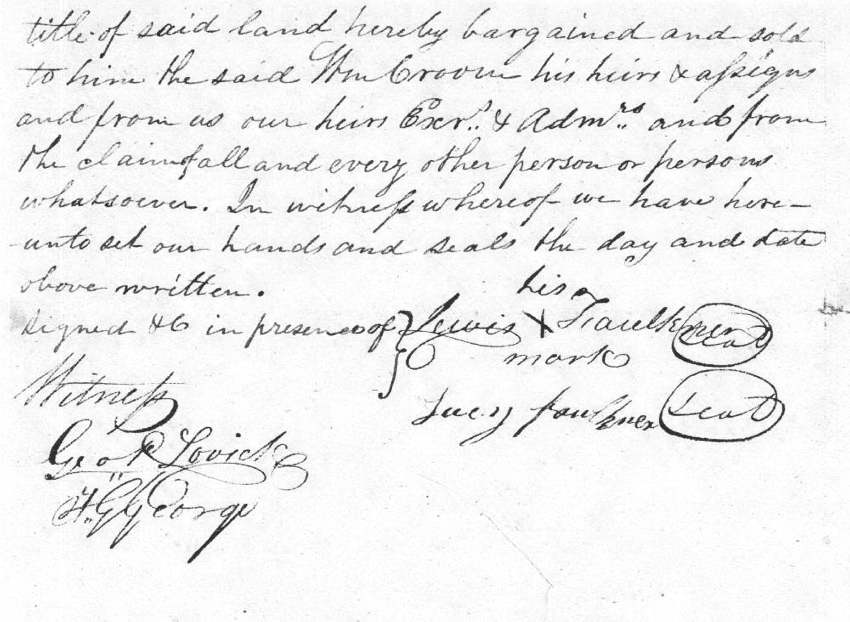 title of said land hereby bargained and sold
to him the said Wm Croom his heirs & assigns
and from us our heirs Exrs. & Admrs. and from
the claim of all and every other person or persons
whatsoever. In witness whereof we have here-
-unto set our hands and seals the day and date
above written.
his
Signed &C in presence of } Lewis X Faulkner seal
mark
Witness
Lucy Faulkner seal
Geo. P Lovick
F. G George